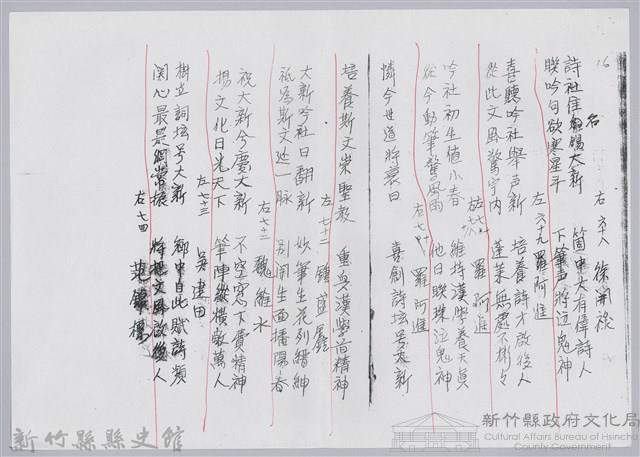 16
詩社佳名錫大新　箇中大有偉詩人
聯吟句欲寒星斗　下筆声將泣鬼神
右六十八　徐開祿
喜聽吟社舉声新　培養詩才啟後人
從此文風驚宇內　蓬萊無處不彬々
左六十九　羅阿進
吟社初生值小春　維持漢學養天真
從今動筆驚風雨　他日聯珠泣鬼神
右七十　羅阿進
憐今世道將衰日　喜創詩坛号大新
培養斯文崇聖教　重興漢學尚精神
左七十一　羅阿進
大新吟社日翻新　妙筆生花列縉紳
祗為斯文延一脉　別開生面播陽春
左七十二　鍾盛鑫
祝大新今慶大新　不空窓下費精神
揚文化日光天下　筆陣縱橫敵萬人
右七十三　魏維水
樹立詞坛号大新　鄉中自此賦詩頻
関心最是綱常振　將把文風啟後人
左七十三　吳建田
右七十四　范
新竹縣縣史館
新竹縣政府文化局
Cultural Affairs Bureau of Hsinchu
County Government